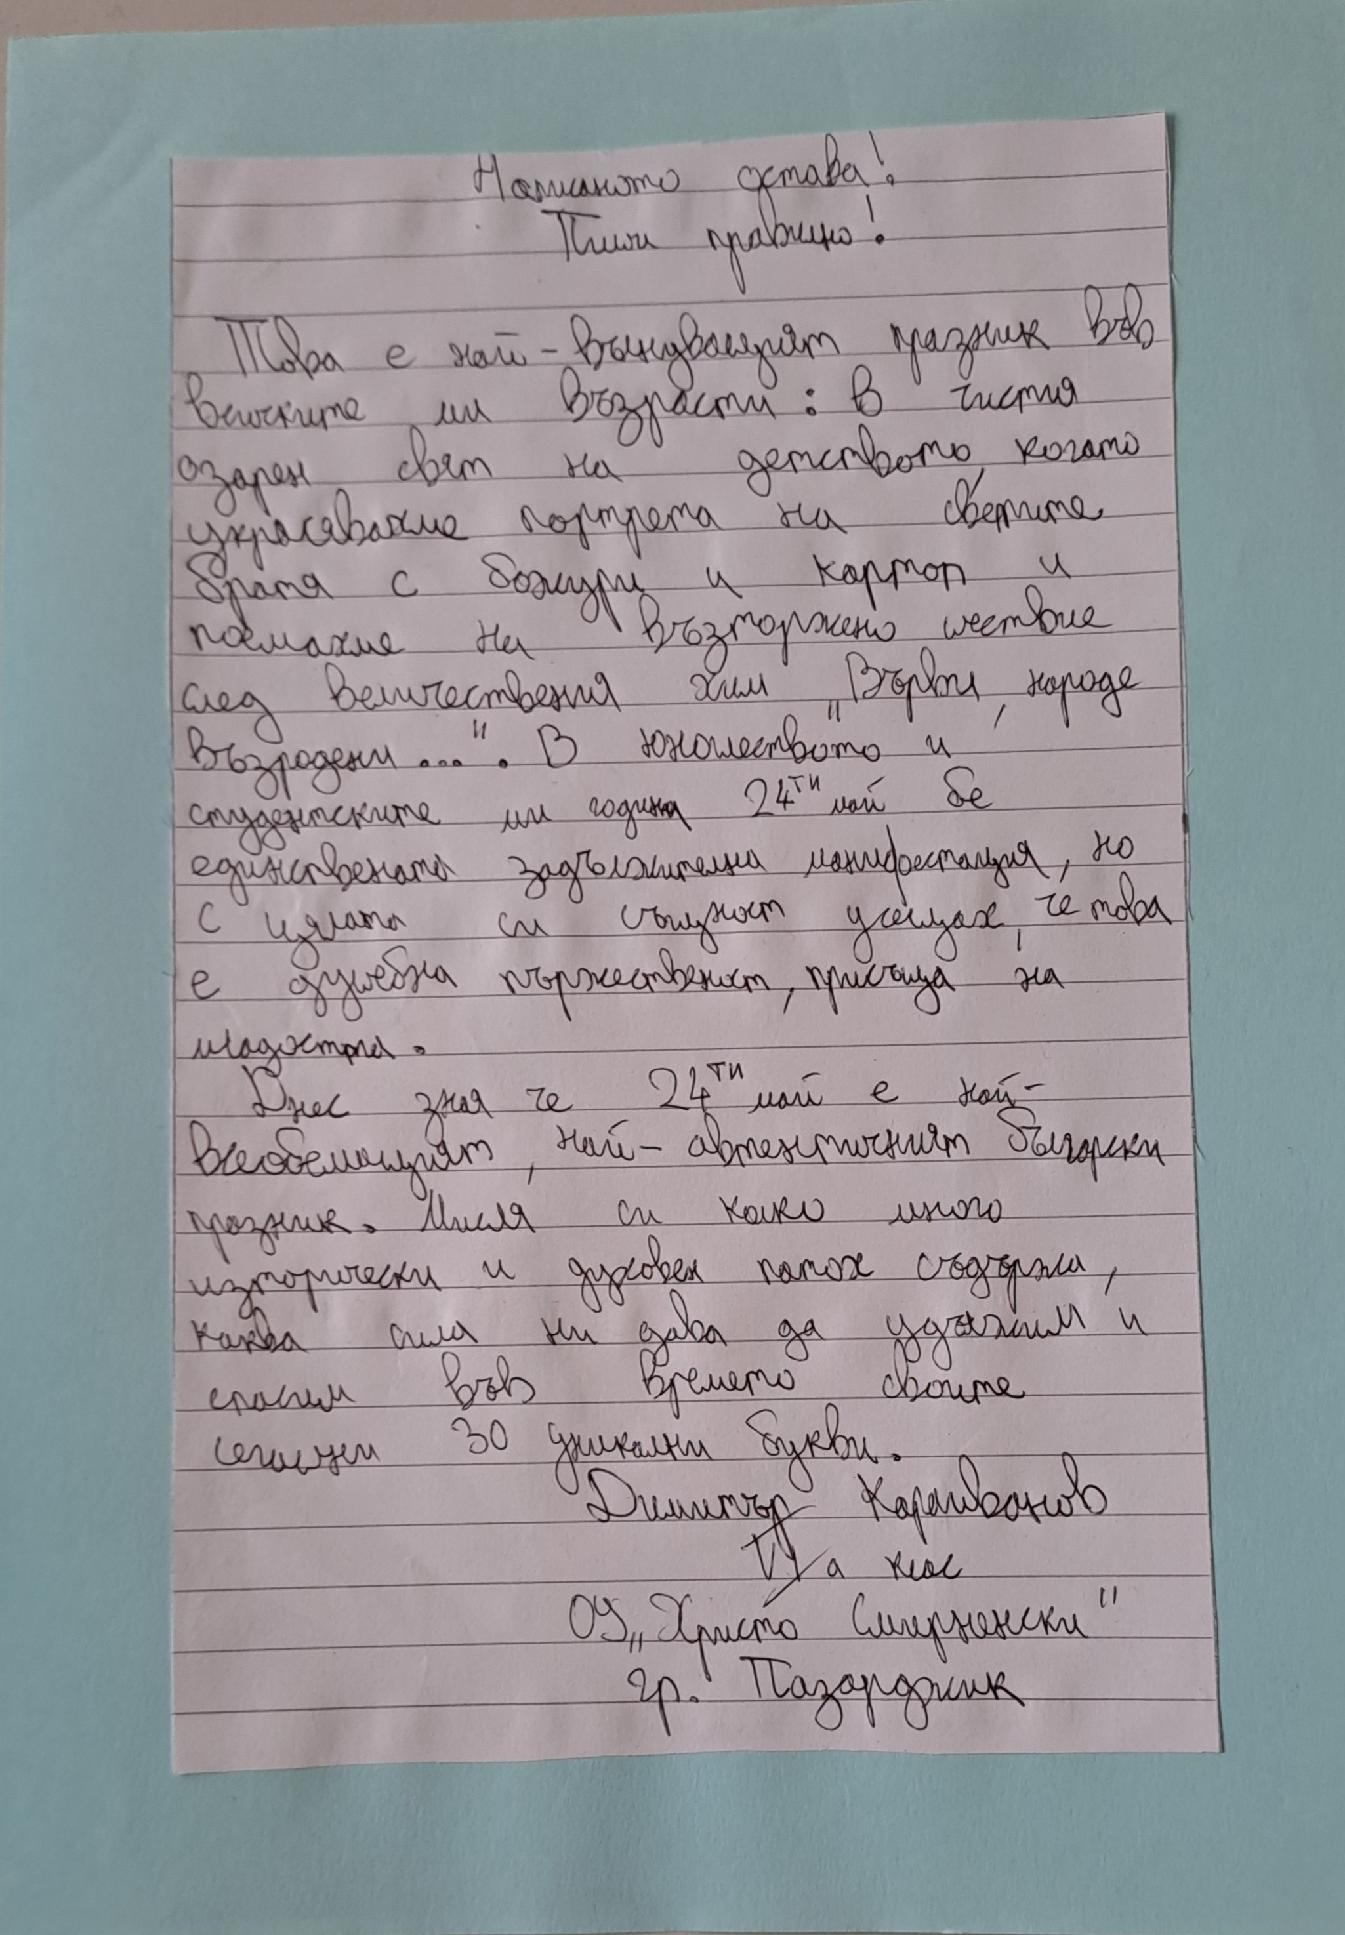 Написаното остава!
Пиши правилно!
Това е най-вълнуващият празник във
всичките ми възрасти: в чистия
озарен свят на детството, когато
украсявахме портрета на светите
братя с божури и картон и
поемахме на възторжено шествие
след величествения химн „Върви, народе
възродени...". В юношеството и
студентските ми години 24ти май бе
единствената задължителна манифестация, но
с цялата си същност усещах, че това
е душевна тържественост, присъща на
младостта.
Днес зная че 24ти май е най-
всеобемащият, най-автентичният български
празник. Мисля си колко много
исторически и духовен патос съдържа,
каква сила ни дава да удължим и
спасим във времето своите
сегашни 30 уникални букви.
Димитър Караиванов
VI а клас
ОУ „Христо Смирненски"
гр. Пазарджик